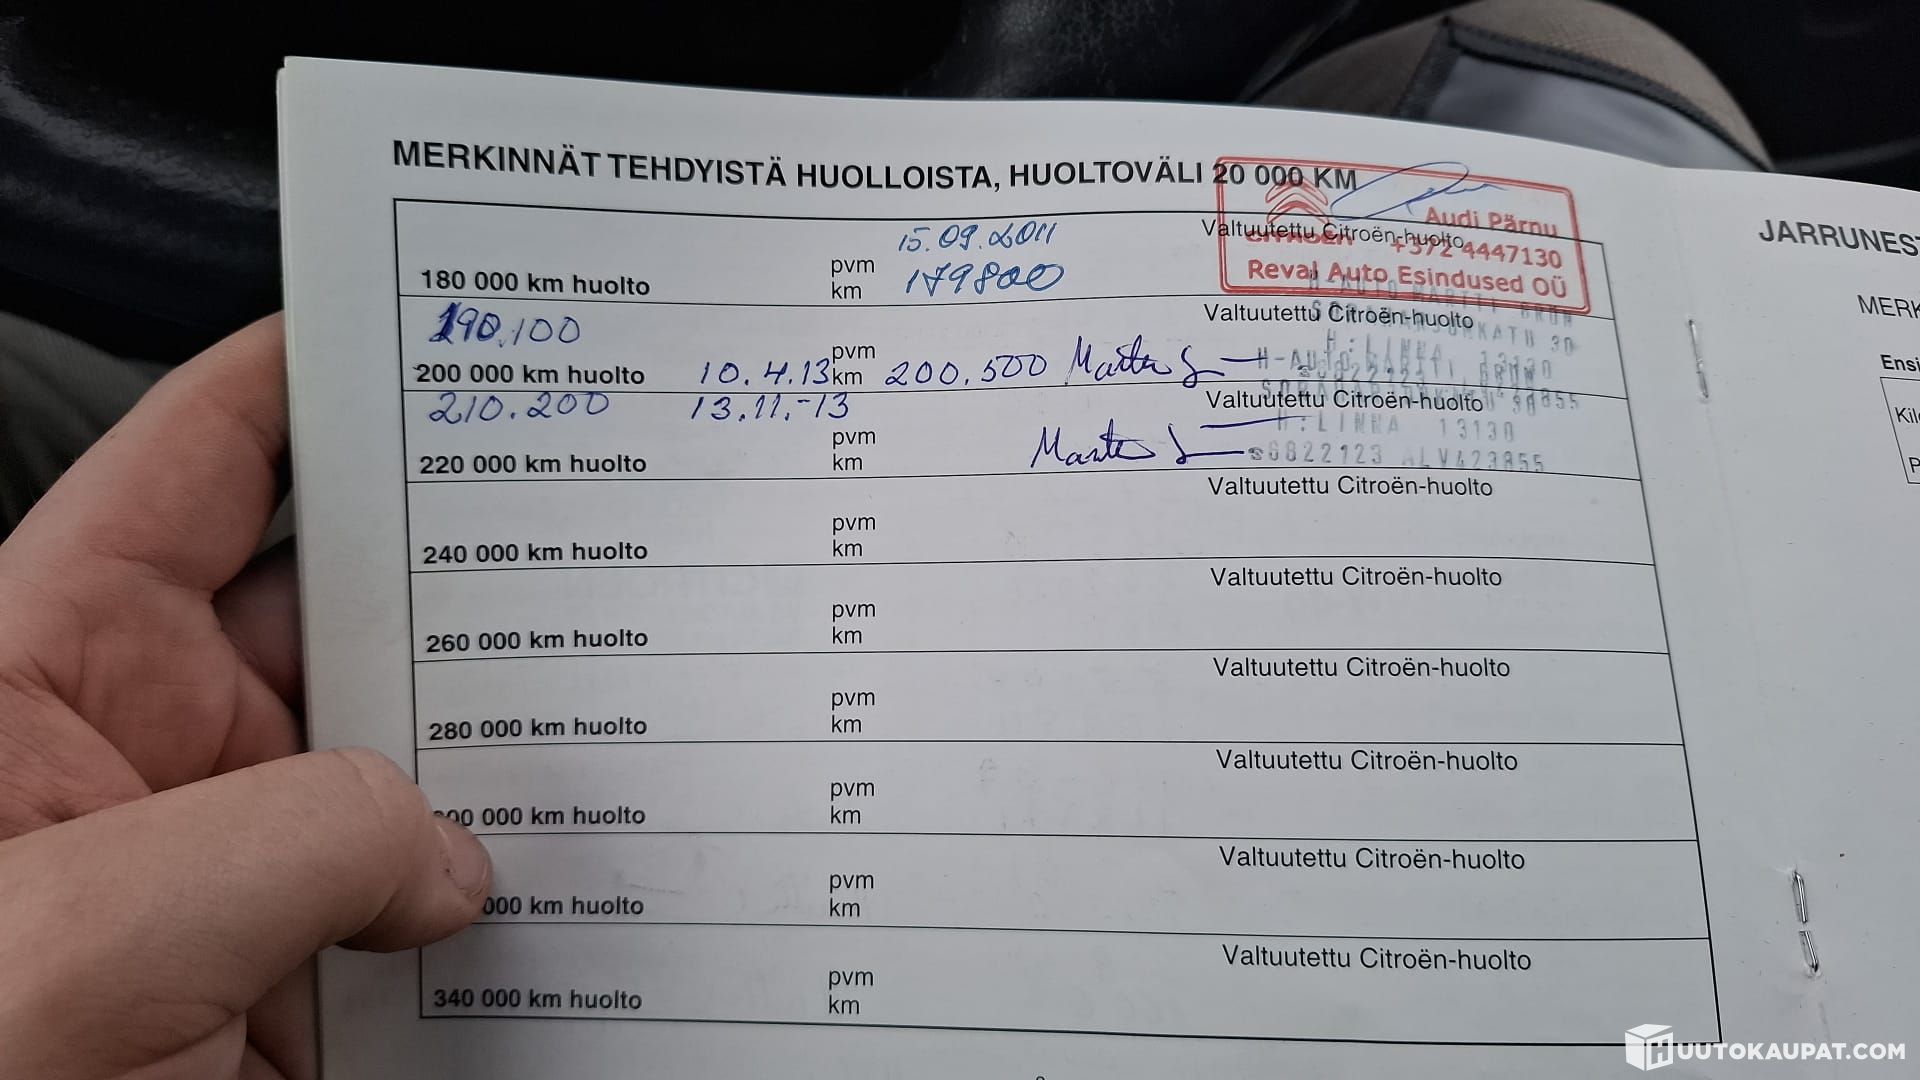 MERKINNÄT TEHDYISTÄ HUOLLOISTA, HUOLTOVÄLI 20 000 KM
Audi Pärnu
CITROËN +372 4447130
Reval Auto Esindused OÜ
15.09.2011
Valtuutettu Citroën-huolto
pvm
180 000 km huolto
km
179800
190.100
Valtuutettu Citroën-huolto
pvm
200 000 km huolto 10.4.13 km 200.500
210.200 13.11.-13
Valtuutettu Citroën-huolto
H:LINNA 13130
pvm
220 000 km huolto
km
6822123 ALV423855
Valtuutettu Citroën-huolto
pvm
240 000 km huolto
km
Valtuutettu Citroën-huolto
pvm
260 000 km huolto
km
Valtuutettu Citroën-huolto
pvm
280 000 km huolto
km
Valtuutettu Citroën-huolto
pvm
000 km huolto
km
Valtuutettu Citroën-huolto
pvm
000 km huolto
km
Valtuutettu Citroën-huolto
pvm
340 000 km huolto
km
JARRUNEST
MERK
Ensi
Kilo
P
HUUTOKAUPAT.COM